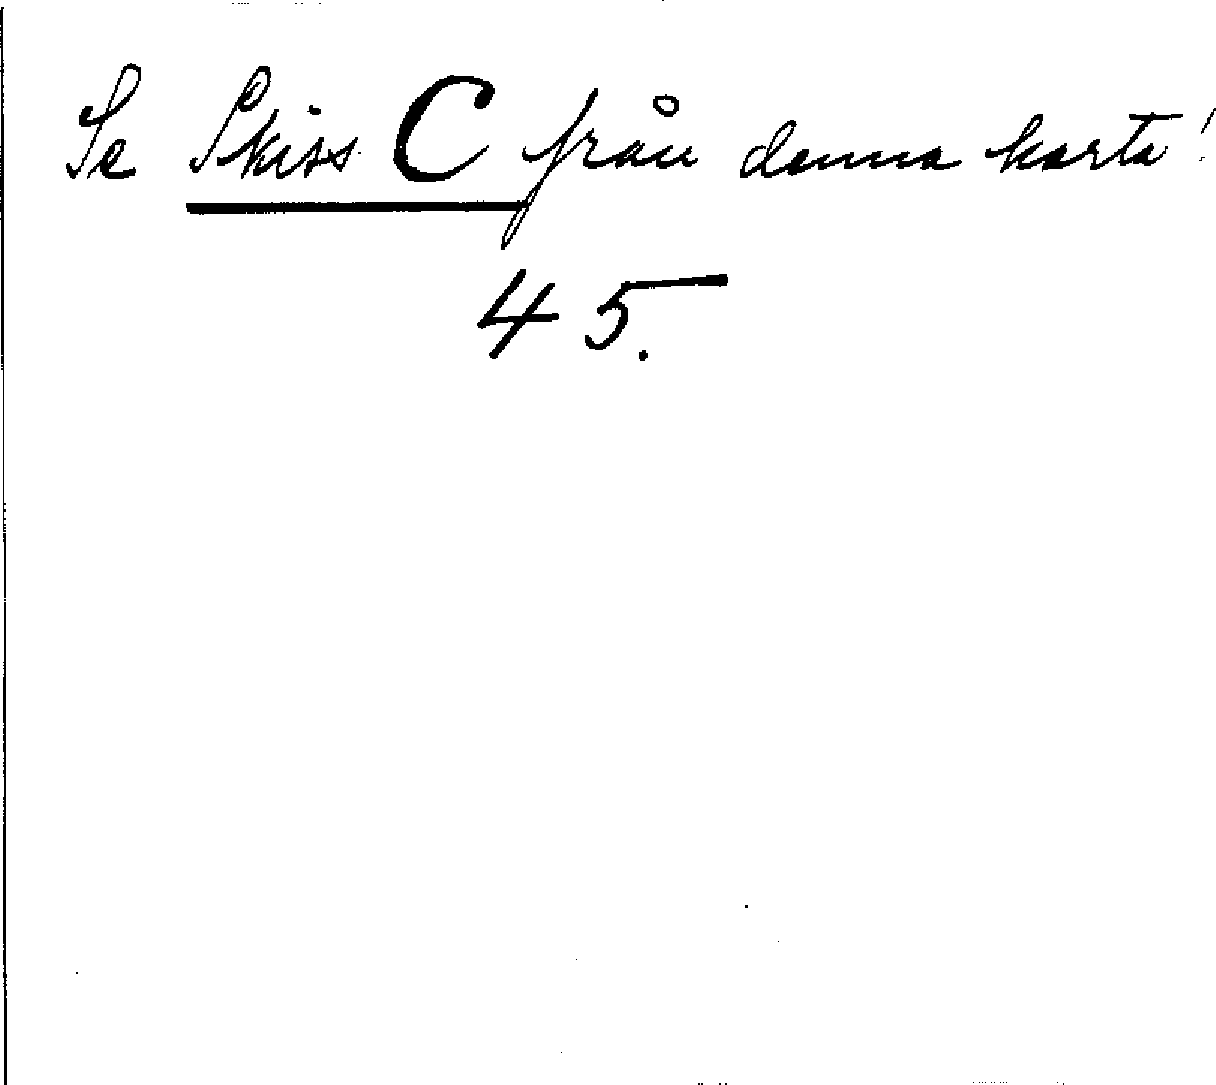 Se Skiss C från denna karta!
45.